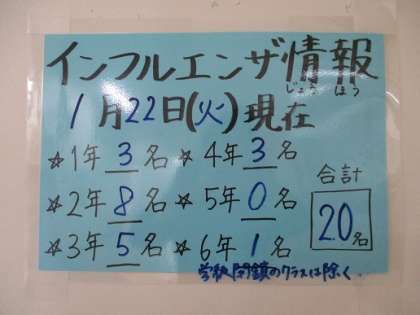 インフルエンザ情報
じょう ほう
1月22日(火)現在
☆1年 3名 ☆4年 3名
☆2年 8名 ☆5年 0名
☆3年 5名 ☆6年 1名
合計
20名
学級閉鎖のクラスは除く。